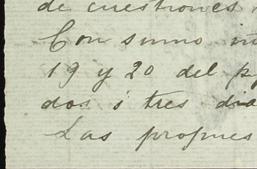 de cuestiones
Con sumo
19 y 20 del
dos ó tres dia
Las propues